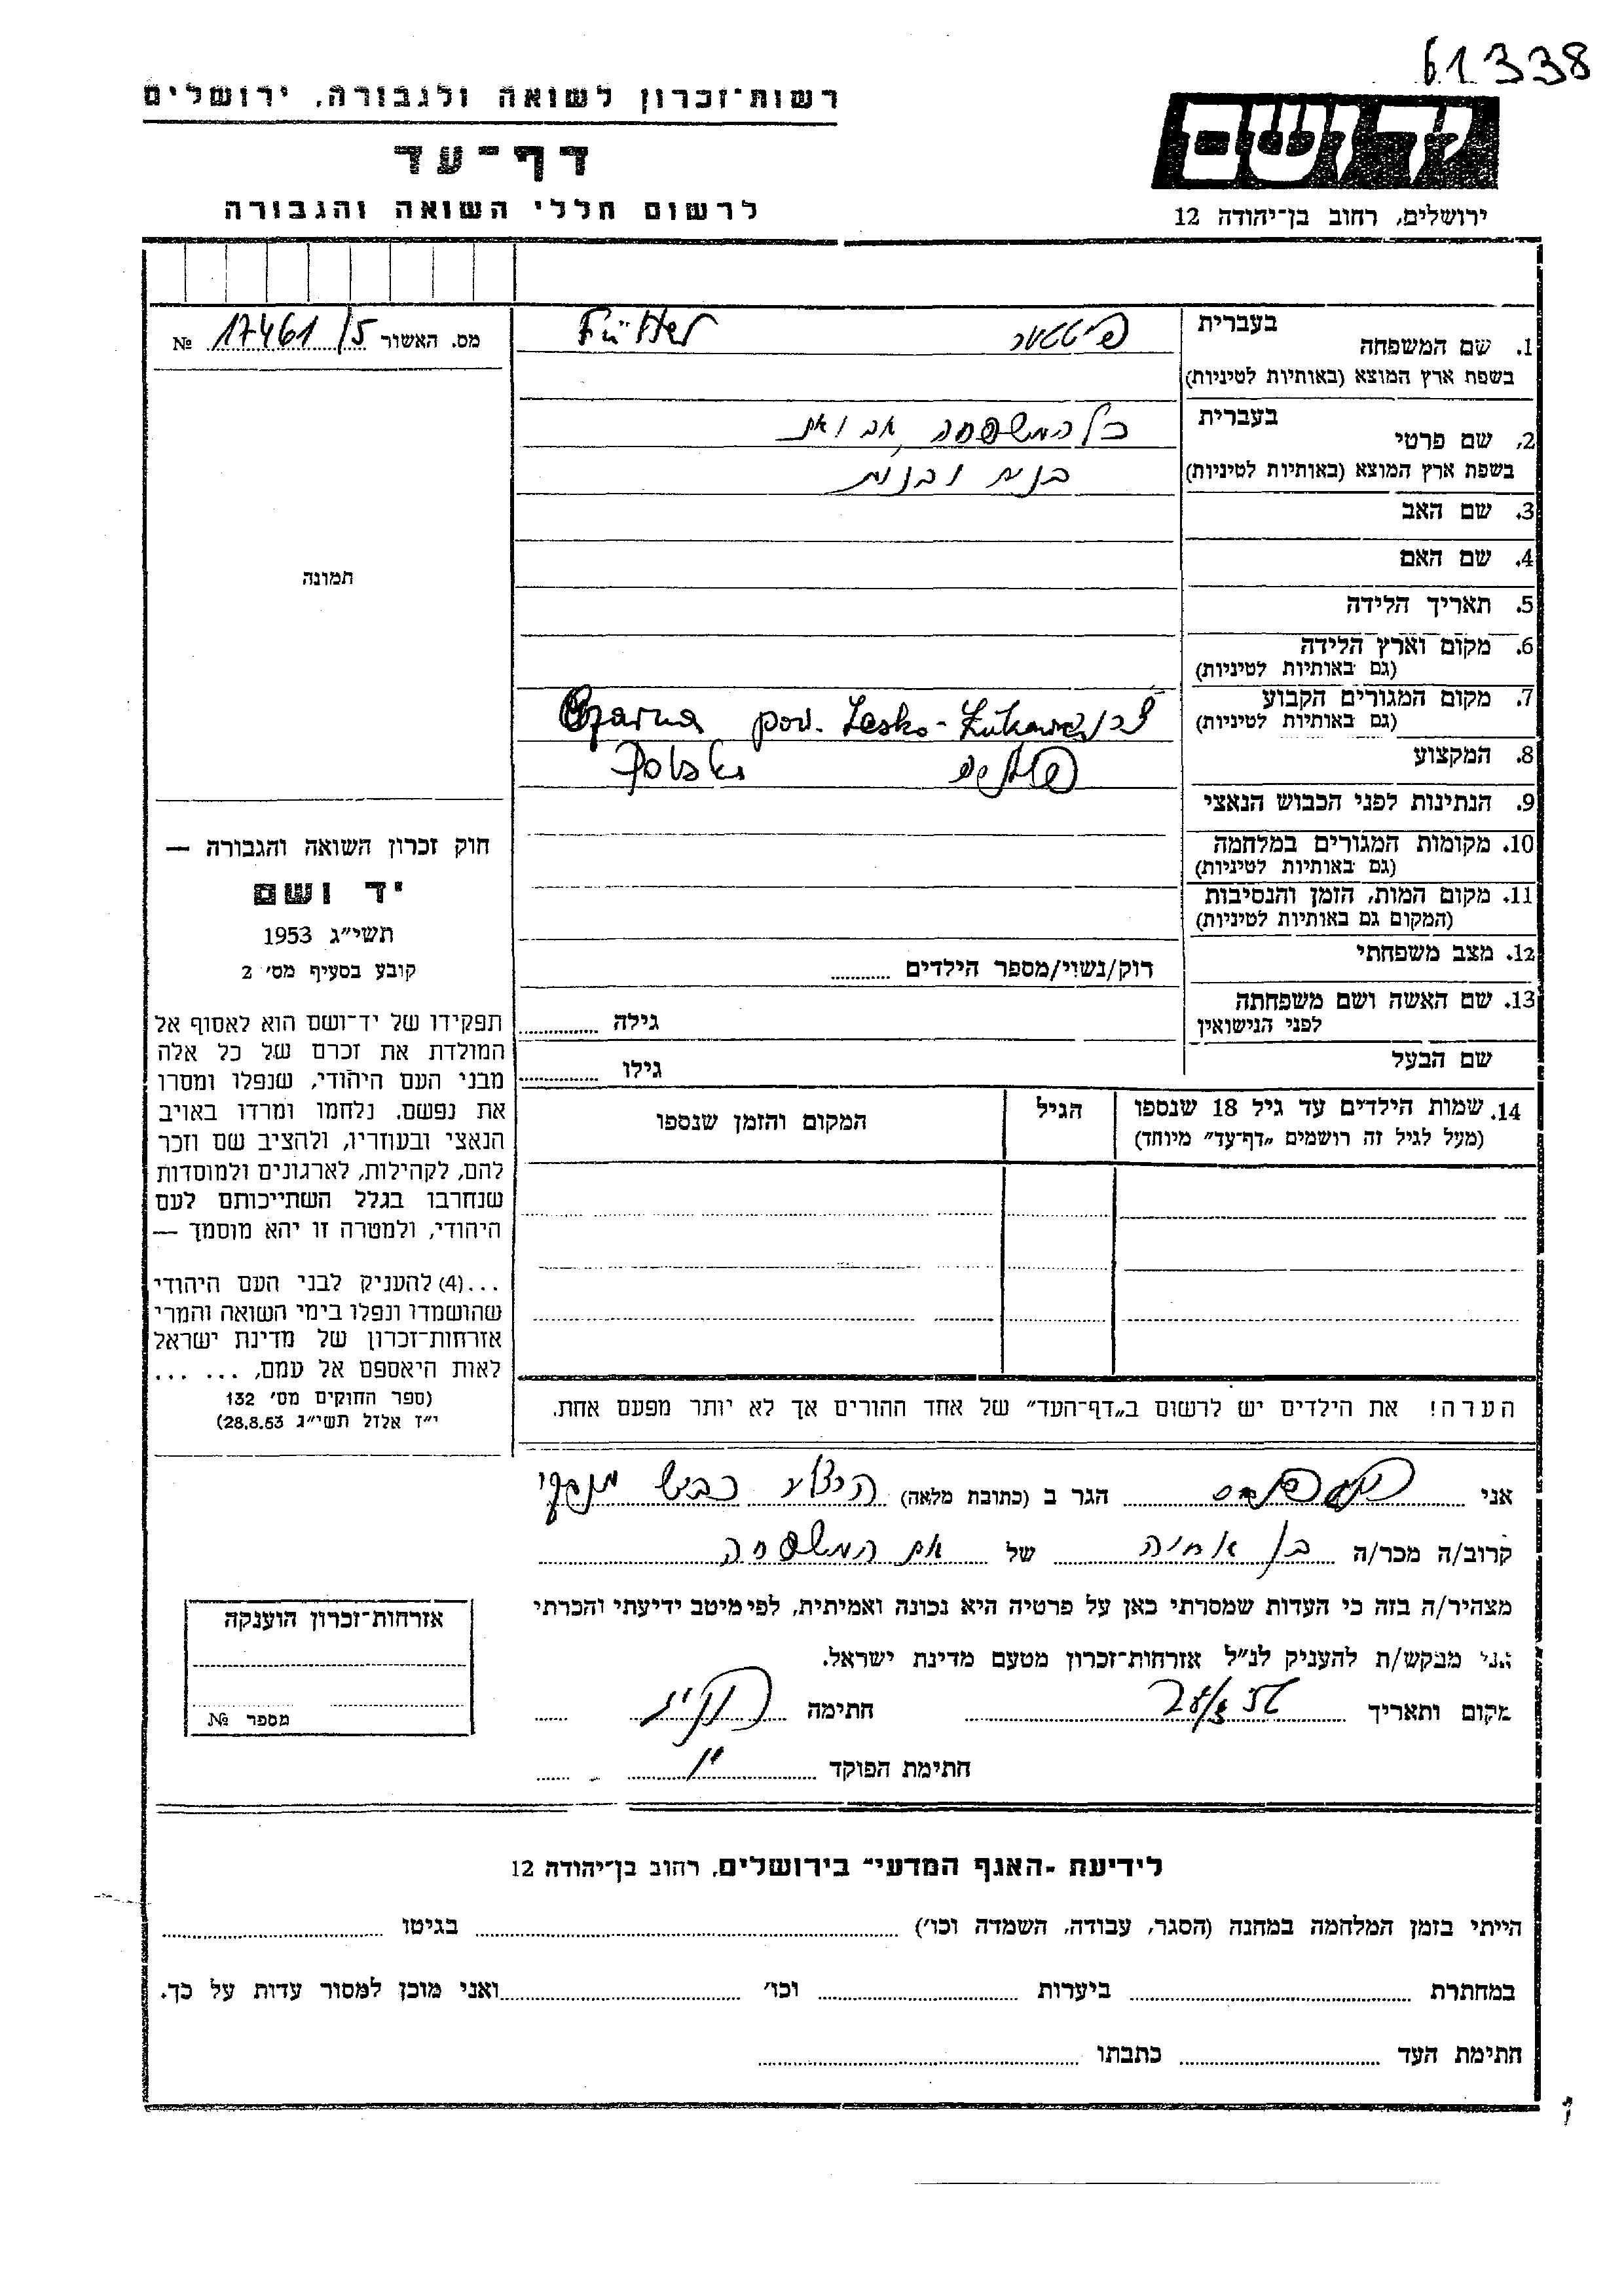 61338
רשות-זכרון לשואה ולגבורה, ירושלים
דף-עד
לרשום חללי השואה והגבורה
יד ושם
ירושלים, רחוב בן-יהודה 12
מס. האשור 17461/5 №
תמונה
חוק זכרון השואה והגבורה —
יד ושם
תשי״ג 1953
קובע בסעיף מס׳ 2
תפקידו של יד-ושם הוא לאסוף אל
המולדת את זכרם של כל אלה
מבני העם היהודי, שנפלו ומסרו
את נפשם, נלחמו ומרדו באויב
הנאצי ובעוזריו, ולהציב שם וזכר
להם, לקהילות, לארגונים ולמוסדות
שנחרבו בגלל השתייכותם לעם
היהודי, ולמטרה זו יהא מוסמך —
...(4) להעניק לבני העם היהודי
שהושמדו ונפלו בימי השואה והמרי
אזרחות-זכרון של מדינת ישראל
לאות היאספם אל עמם, ... ...
(ספר החוקים מס׳ 132
י״ז אלול תשי״ג 28.8.53)
בעברית
1. שם המשפחה פיטטער Fütter
בשפת ארץ המוצא (באותיות לטיניות)
בעברית
2. שם פרטי כל המשפחה אב ואם
בשפת ארץ המוצא (באותיות לטיניות) בנים ובנות
3. שם האב
4. שם האם
5. תאריך הלידה
6. מקום וארץ הלידה
(גם באותיות לטיניות)
7. מקום המגורים הקבוע Czarna pow. Lesko-
(גם באותיות לטיניות)
8. המקצוע Polska
9. הנתינות לפני הכבוש הנאצי
10. מקומות המגורים במלחמה
(גם באותיות לטיניות)
11. מקום המות, הזמן והנסיבות
(המקום גם באותיות לטיניות)
12. מצב משפחתי רוק/נשוי/מספר הילדים
13. שם האשה ושם משפחתה גילה
לפני הנישואין
שם הבעל גילו
14. שמות הילדים עד גיל 18 שנספו הגיל המקום והזמן שנספו
(מעל לגיל זה רושמים „דף-עד״ מיוחד)
הערה! את הילדים יש לרשום ב„דף-העד״ של אחד ההורים אך לא יותר מפעם אחת.
אני הגר ב (כתובת מלאה) כביש
קרוב/ה מכר/ה בן אחיה של אם המשפחה
מצהיר/ה בזה כי העדות שמסרתי כאן על פרטיה היא נכונה ואמיתית, לפי מיטב ידיעתי והכרתי
הנני מבקש/ת להעניק לנ״ל אזרחות-זכרון מטעם מדינת ישראל.
מקום ותאריך חתימה
חתימת הפוקד
אזרחות-זכרון הוענקה
מספר №
לידיעת ״האגף המדעי״ בירושלים, רחוב בן-יהודה 12
הייתי בזמן המלחמה במחנה (הסגר, עבודה, השמדה וכו׳) בגיטו
במחתרת ביערות וכו׳ ואני מוכן למסור עדות על כך.
חתימת העד כתבתו